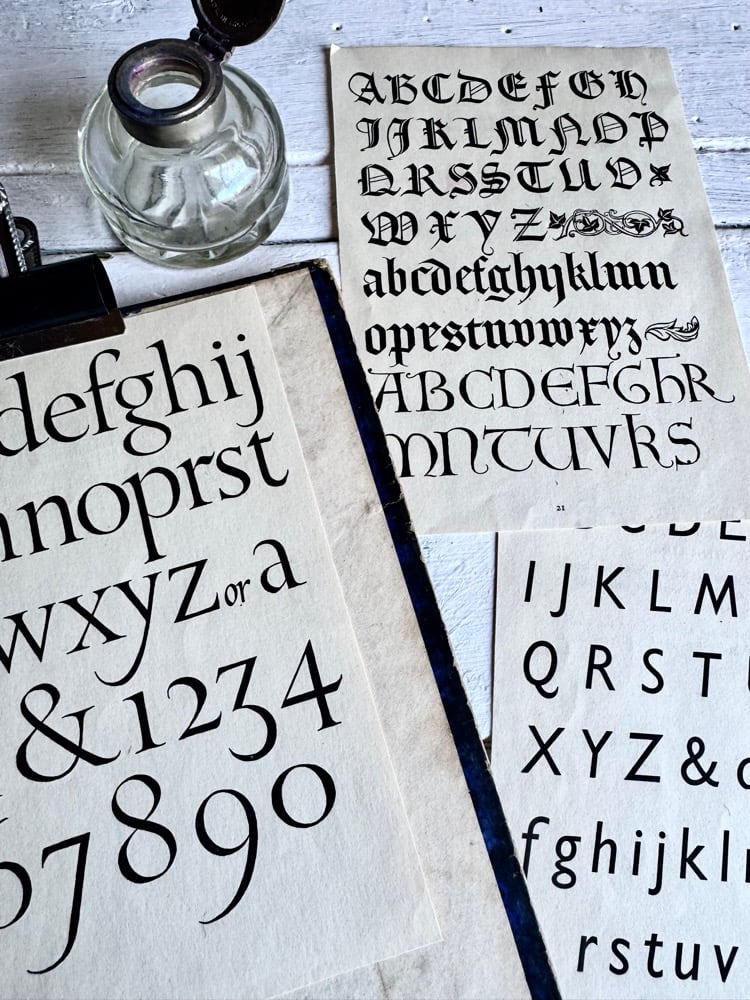 ABCDEFGH
IJKLMNOP
QRSSTUV
WXYZ
abcdefghijklmn
oprstuvwxyz
ABCDEFGhR
MNTUVkS
21
defghij
noprst
wxyz or a
&1234
7890
CDE
IJKLM
QRST
XYZ&
fghijkl
rstuv